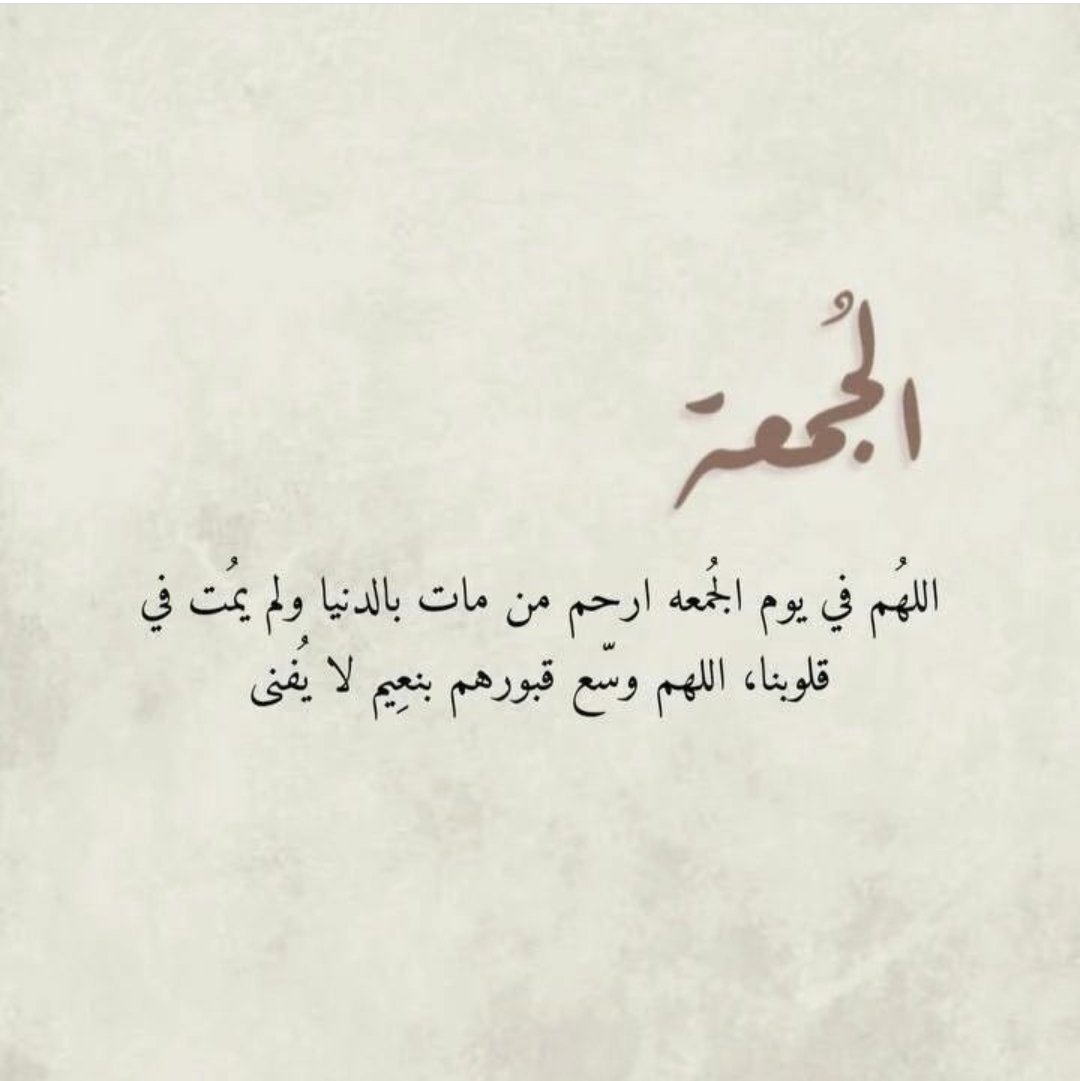 الجُمعة
اللهُم في يوم الجُمعه ارحم من مات بالدنيا ولم يمُت في
قلوبنا، اللهم وسّع قبورهم بنعِيم لا يُفنى